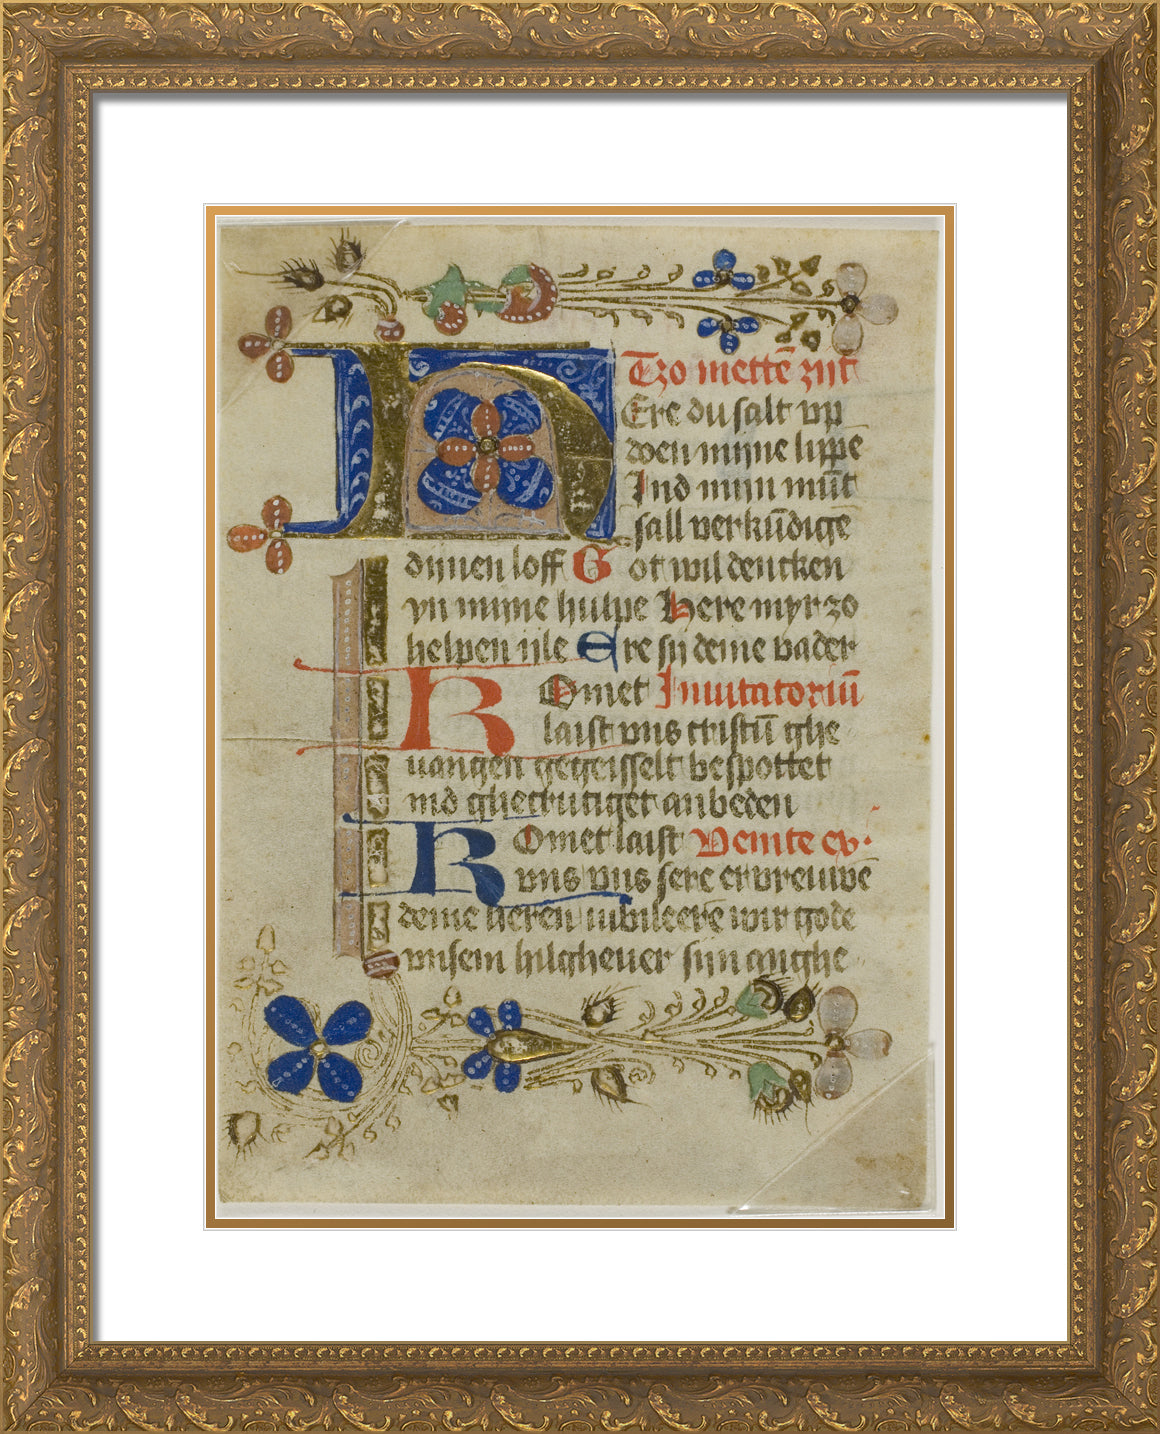 Tzo mettē zijt
HEre du salt vp
doen mijne lippe
Ind mijn mūt
sall verkūdigē
dijnen loff Got wil dencken
yn mijne hulpe Here myr zo
helpen ijle Ere sij deme vader
Komet Inuitatoriū
laist vns cristū ghe
uangen gegeisselt bespottet
ind ghecruciget anbeden
Komet laist Venite ex.
vns vns sere ervreuwē
deme heren iubileere wir gode
vnsem hilgheuer sijn anghe